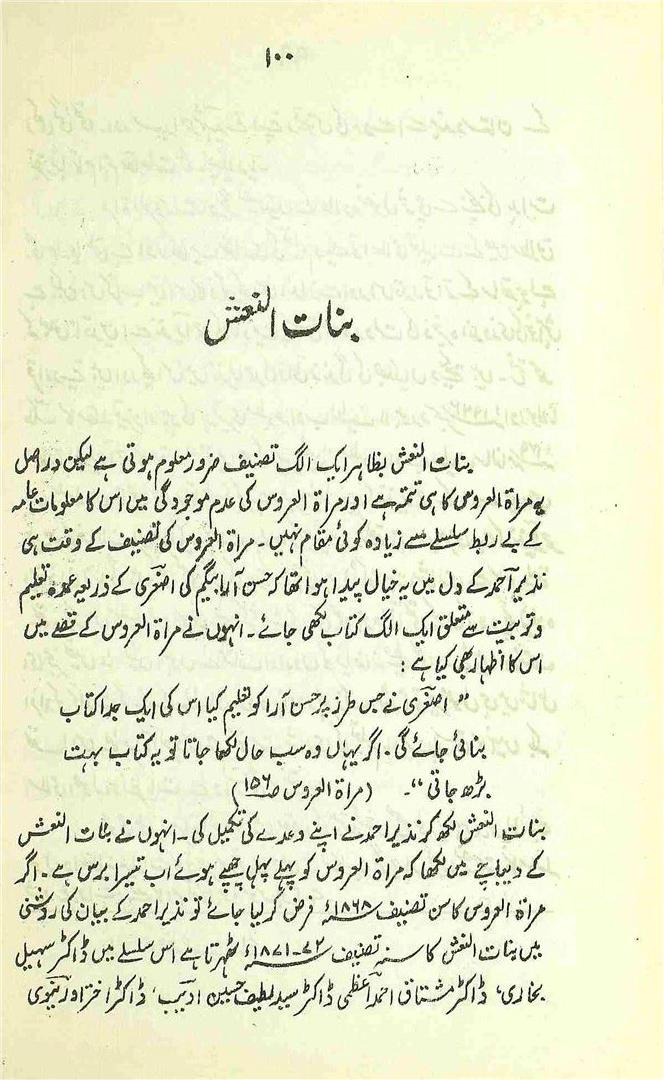 ۱۰۰
بنات النعش
بنات النعش بظاہر ایک الگ تصنیف ضرور معلوم ہوتی ہے لیکن در اصل
یہ مراۃ العروس کا ہی تتمہ ہے اور مراۃ العروس کی عدم موجودگی میں اس کا معلومات عامہ
کے بے ربط سلسلے سے زیادہ کوئی مقام نہیں۔ مراۃ العروس کی تصنیف کے وقت ہی
نذیر احمد کے دل میں یہ خیال پیدا ہوا تھا کہ حسن آرا بیگم کی اصغری کے ذریعہ عمدہ تعلیم
و تربیت سے متعلق ایک الگ کتاب لکھی جائے۔ انہوں نے مراۃ العروس کے قصے میں
اس کا اظہار بھی کیا ہے :
" اصغری نے جس طرز پر حسن آرا کو تعلیم کیا اس کی ایک جدا کتاب
بنائی جائے گی۔ اگر یہاں وہ سب حال لکھا جاتا تو یہ کتاب بہت
بڑھ جاتی "۔ (مراۃ العروس صـ۱۵۶)
بنات النعش لکھ کر نذیر احمد نے اپنے وعدے کی تکمیل کی۔ انہوں نے بنات النعش
کے دیباچے میں لکھا کہ مراۃ العروس کو پہلے پہل چھپے ہوئے اب تیسرا برس ہے۔ اگر
مراۃ العروس کا سن تصنیف ۱۸۶۸ء فرض کر لیا جائے تو نذیر احمد کے بیان کی روشنی
میں بنات النعش کا سنہ تصنیف ۷۲-۱۸۷۱ء ٹھہرتا ہے اس سلسلے میں ڈاکٹر سہیل
بخاری، ڈاکٹر مشتاق احمد اعظمی ڈاکٹر سید لطیف حسین ادیب، ڈاکٹر اختر اورینوی